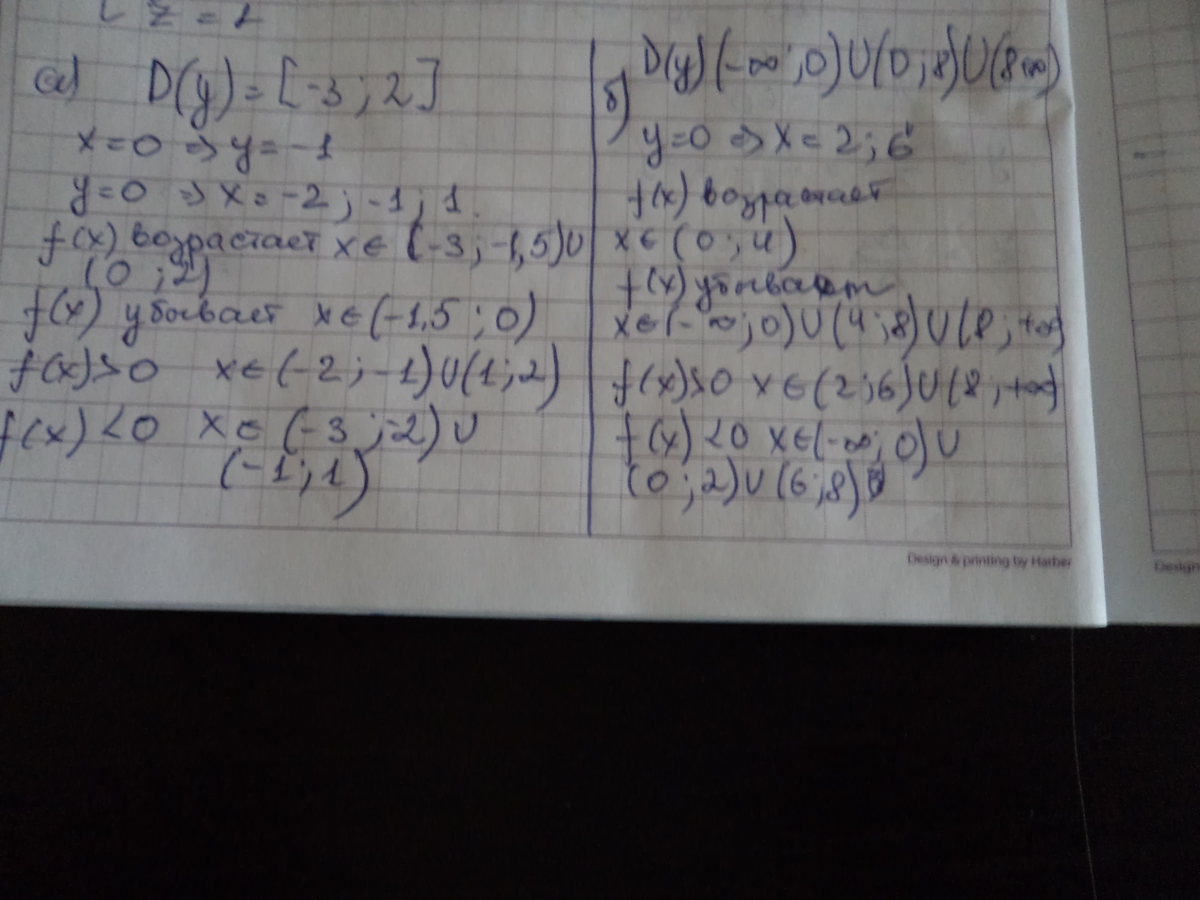 z = 1
а) D(y) = [-3 ; 2]
x=0 ⇒ y = -1
y=0 ⇒ x = -2 ; -1 ; 1.
f(x) возрастает x ∈ (-3 ; -1,5) ∪
(0 ; 2)
f(x) убывает x ∈ (-1,5 ; 0)
f(x) > 0 x ∈ (-2 ; -1) ∪ (1 ; 2)
f(x) < 0 x ∈ (-3 ; -2) ∪
(-1 ; 1)
б) D(y) (-∞ ; 0) ∪ (0 ; 8) ∪ (8 +∞)
y=0 ⇒ x = 2 ; 6
f(x) возрастает
x ∈ (0 ; 4)
f(x) убывает
x ∈ (-∞ ; 0) ∪ (4 ; 8) ∪ (8 ; +∞)
f(x) > 0 x ∈ (2 ; 6) ∪ (8 ; +∞)
f(x) < 0 x ∈ (-∞ ; 0) ∪
(0 ; 2) ∪ (6 ; 8)
Design & printing by Hatber
Design